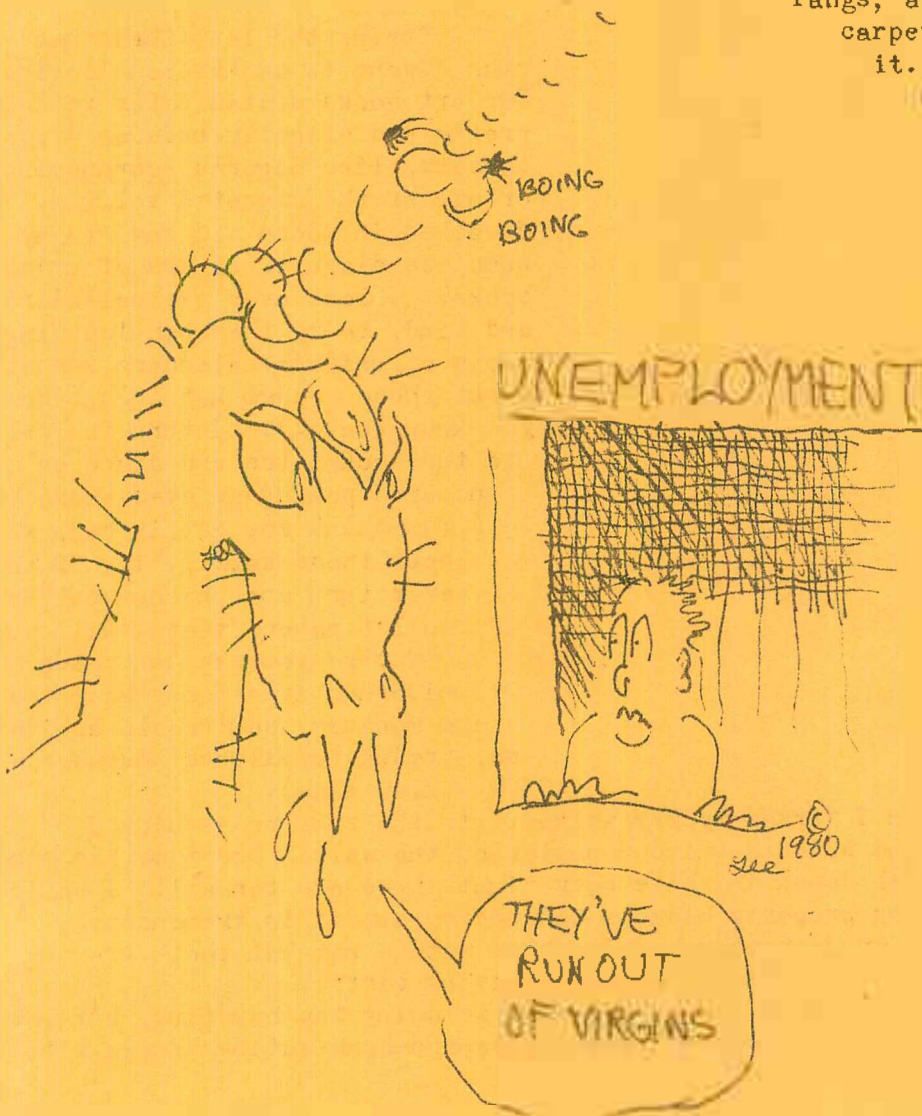 fangs, a
carpe
it.
BOING
BOING
UNEMPLOYMENT
Lee
©
1980
Lee
THEY'VE
RUN OUT
OF VIRGINS